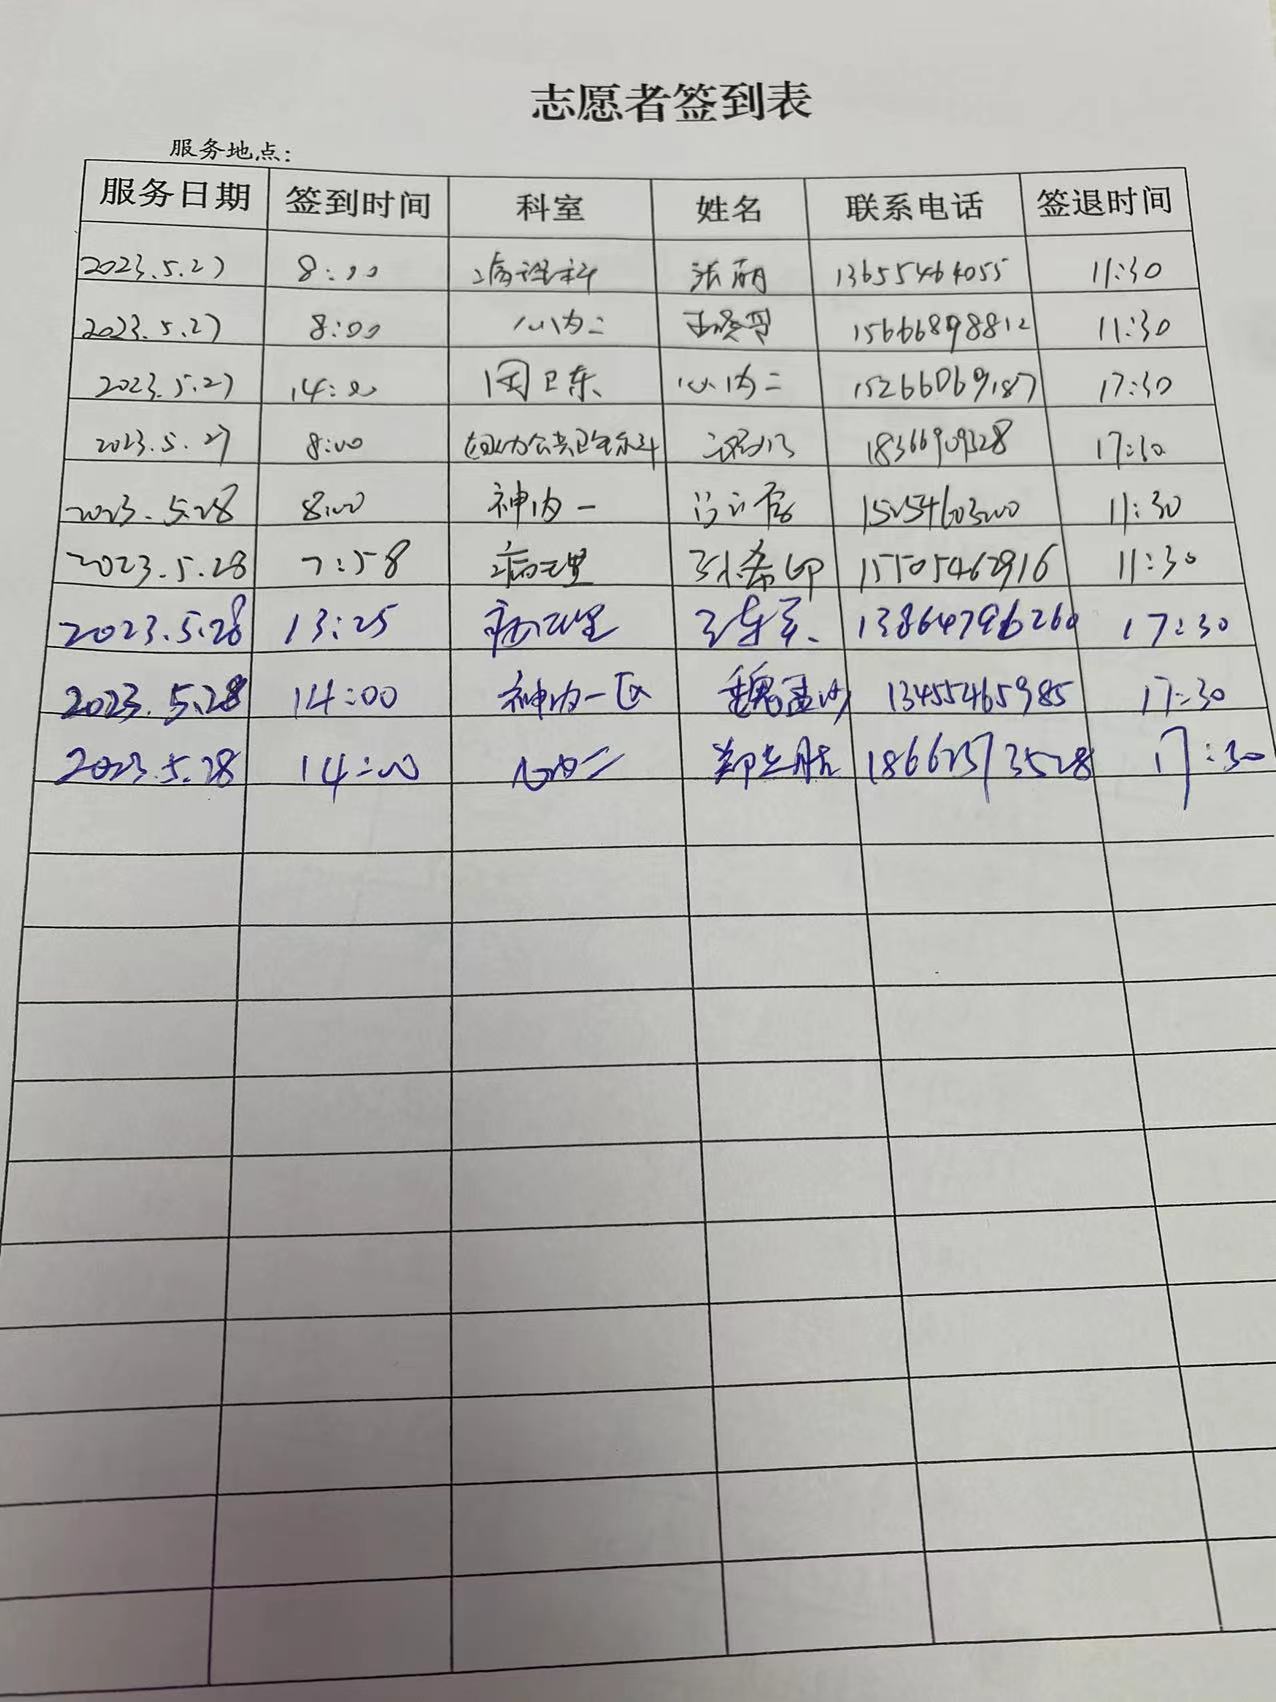 志愿者签到表
服务地点:
服务日期 签到时间 科室 姓名 联系电话 签退时间
2023.5.27 8:00 病理科 张丽 13655464055 11:30
2023.5.27 8:00 心内二 15666898812 11:30
2023.5.27 14:00 周卫东 心内二 15266069187 17:30
2023.5.27 8:00 18366909328 17:30
2023.5.28 8:00 神内一 15254603200 11:30
2023.5.28 7:58 病理 15705462916 11:30
2023.5.28 13:25 病理 13864796260 17:30
2023.5.28 14:00 神内一区 13455465985 17:30
2023.5.28 14:00 心内二 18662573528 17:30